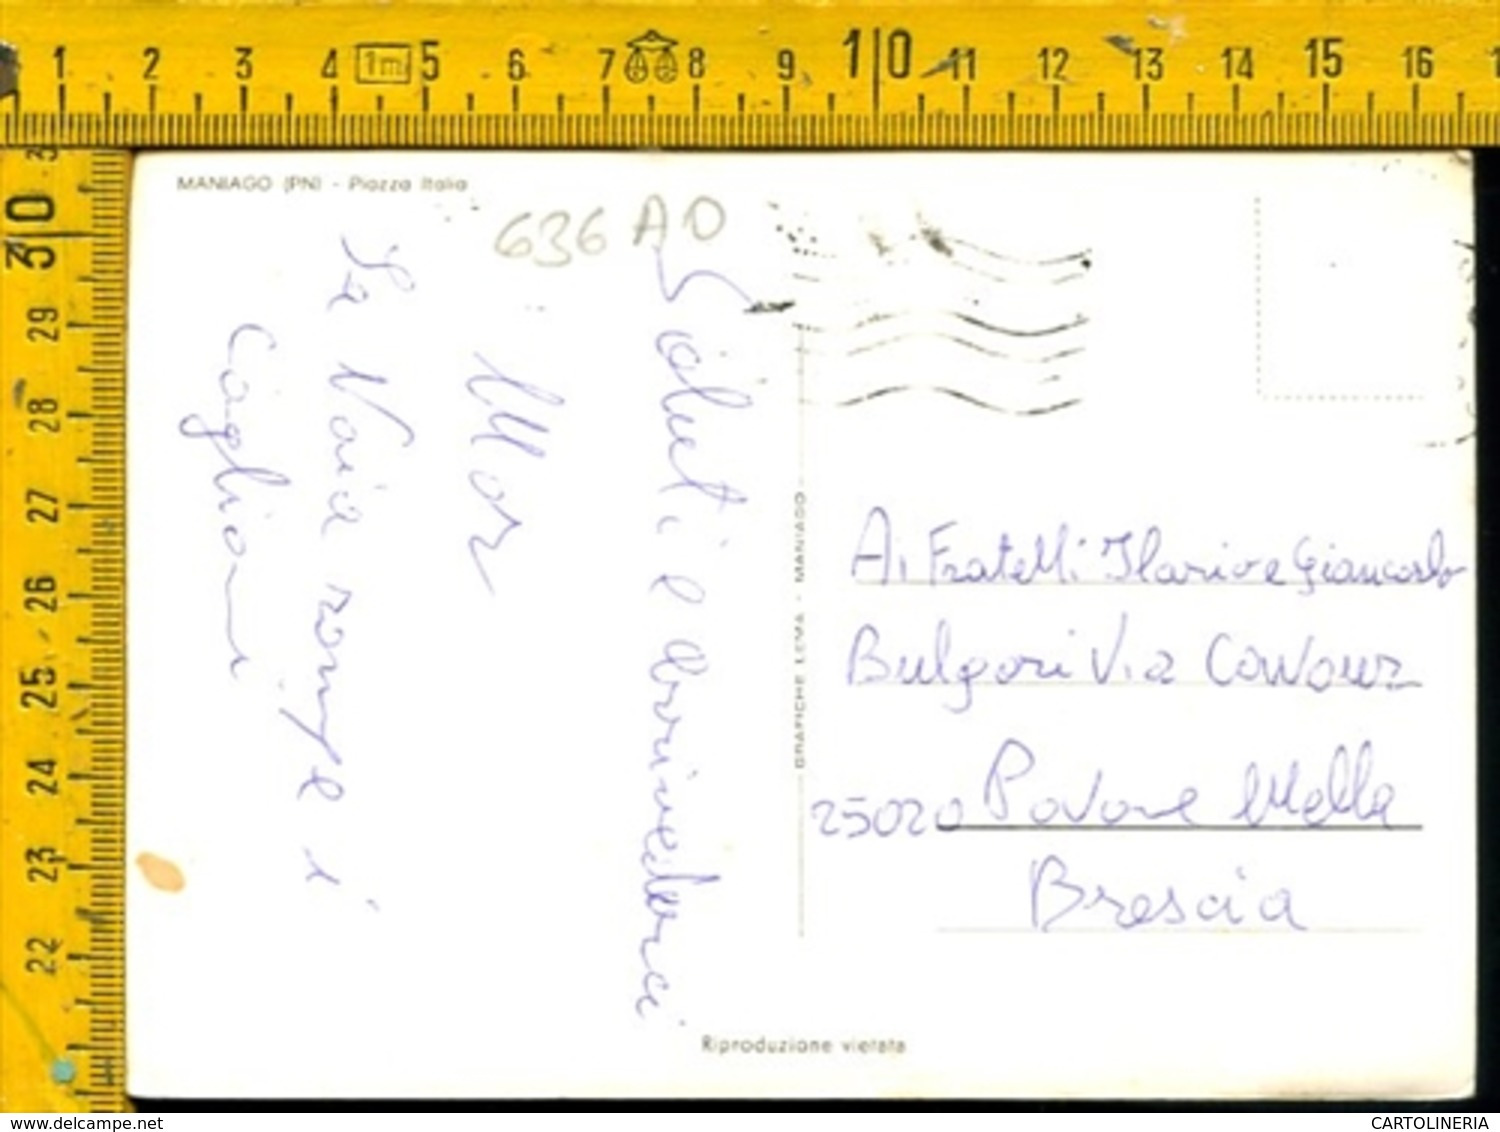 1 2 3 4 1m 5 6 7 8 9 10 11 12 13 14 15 16
30
29
28
27
26
25
24
23
22
MANIAGO (PN) - Piazza Italia
636 AD
Saluti e arrivederci
Mor
La Naia rompe i
Coglioni
GRAFICHE LEMA - MANIAGO
Ai Fratelli Ilario e Giancarlo
Bulgari Via Cavour
25020 Pavone Mella
Brescia
Riproduzione vietata
www.delcampe.net
CARTOLINERIA